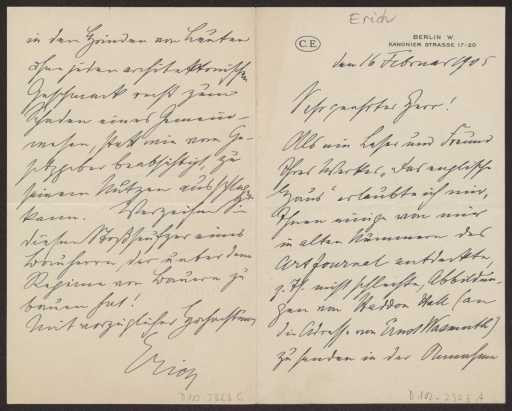 in den Händen von Leuten
ohne jeden architektonischen
Geschmack recht zum
Schaden eines Gemein-
wesen, statt wie vom Ge-
setzgeber beabsichtigt, zu
seinem Nutzen ausschlagen
kann. Verzeihen Sie
diesen Stoßseufzer eines
Bauherrn, der unter dem
Regime von Bauern zu
bauen hat!
Mit vorzüglicher Hochachtung
Erich
Erich
C.E.
BERLIN W.
KANONIER STRASSE 17-20
den 16 Februar 1905
Sehr geehrter Herr!
Als ein Leser und Freund
Ihres Werkes, "das englische
Haus" erlaubte ich mir,
Ihnen einige von mir
in alten Nummern des
Art Journal entdeckte,
z. Th. nicht schlechte, Abbildun-
gen von Haddon Hall (an
die Adresse von Ernst Wasmuth)
zu senden in der Annahme